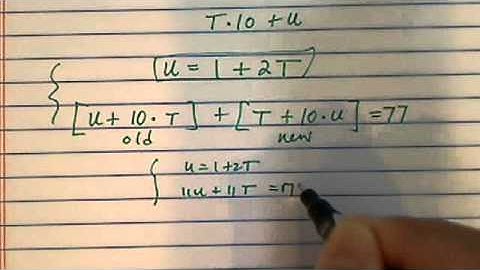 T·10+u
u = 1 + 2T
[u + 10·T] + [T + 10·u] = 77
old new
u = 1 + 2T
11u + 11T = 7